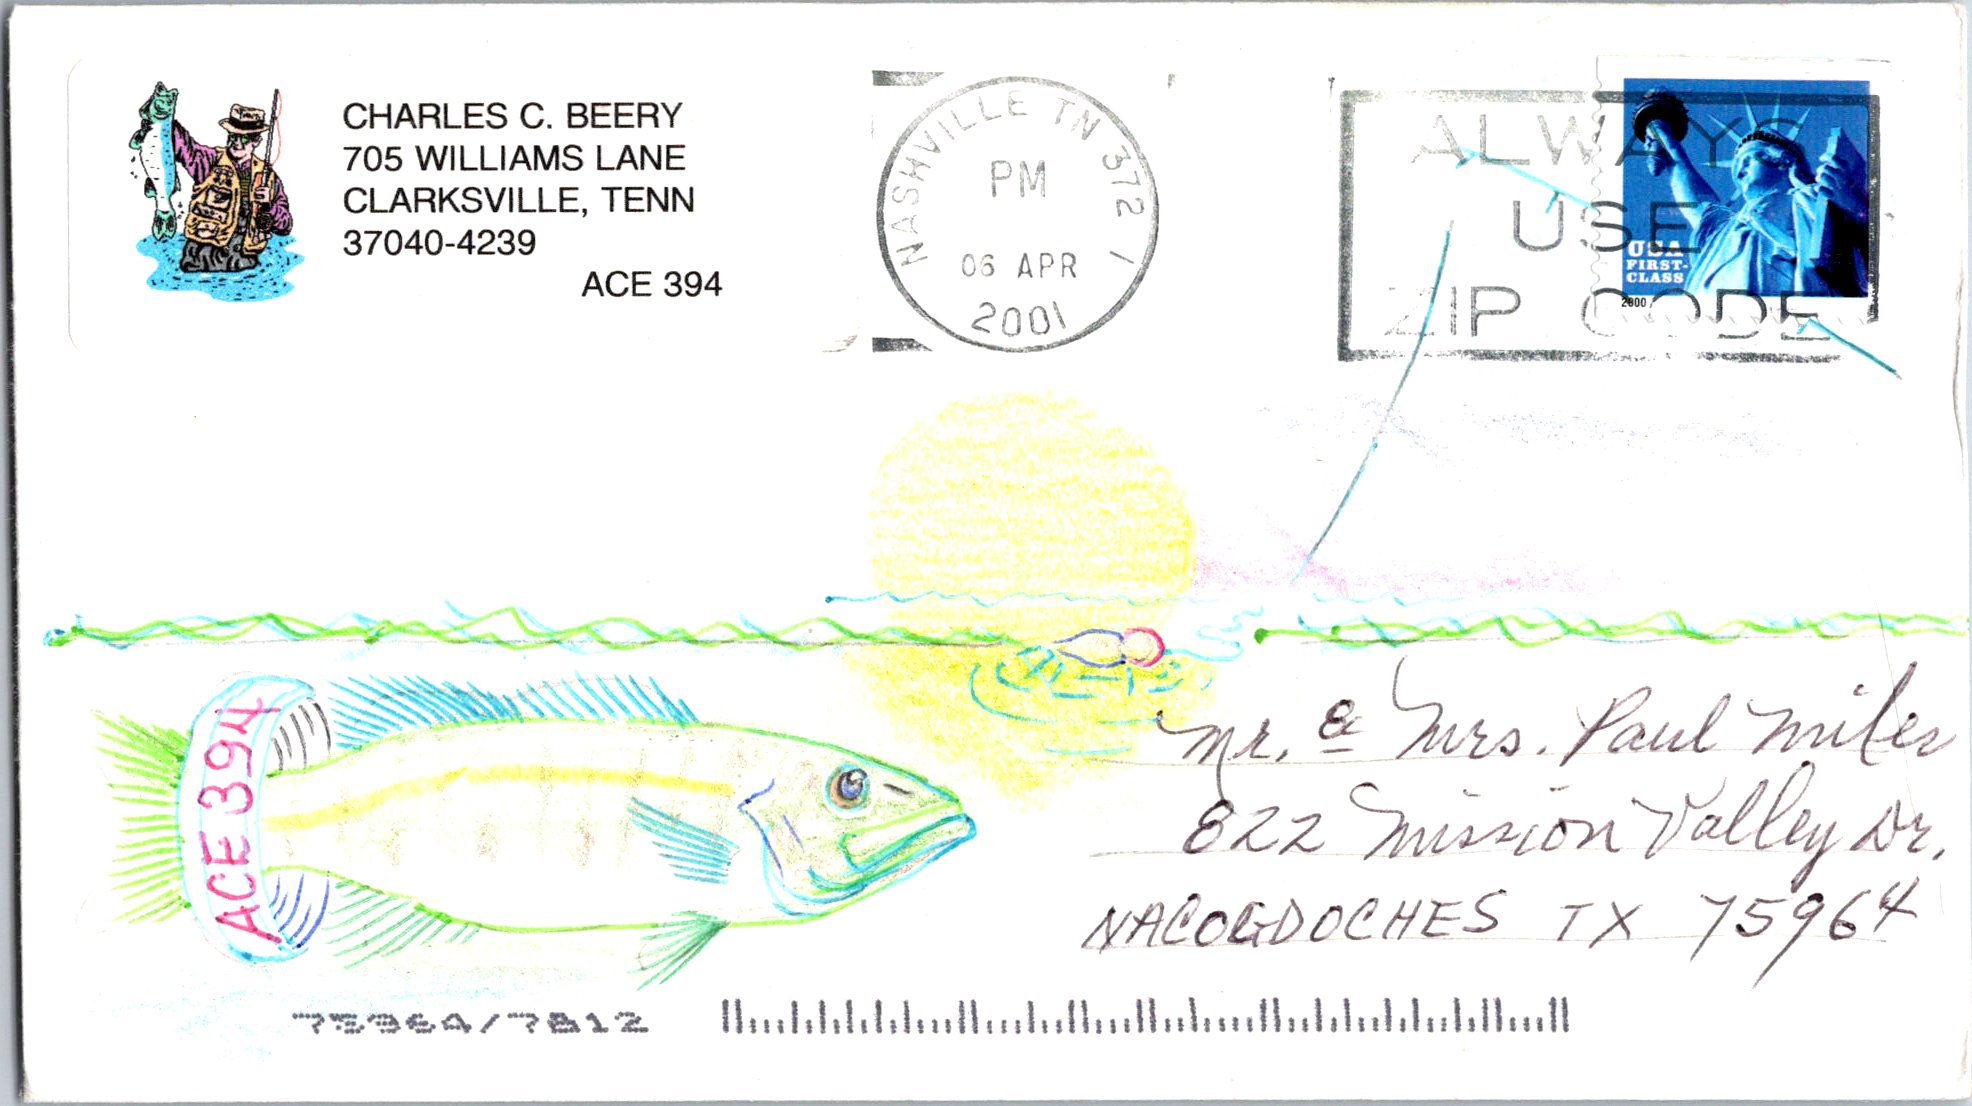 CHARLES C. BEERY
705 WILLIAMS LANE
CLARKSVILLE, TENN
37040-4239
ACE 394
NASHVILLE TN 372
PM
06 APR
2001
ALWAYS
USE
ZIP CODE
USA
FIRST-
CLASS
2000
ACE 394
Mr. & Mrs. Paul Miles
822 Mission Valley Dr.
NACOGDOCHES TX 75964
75964/7812